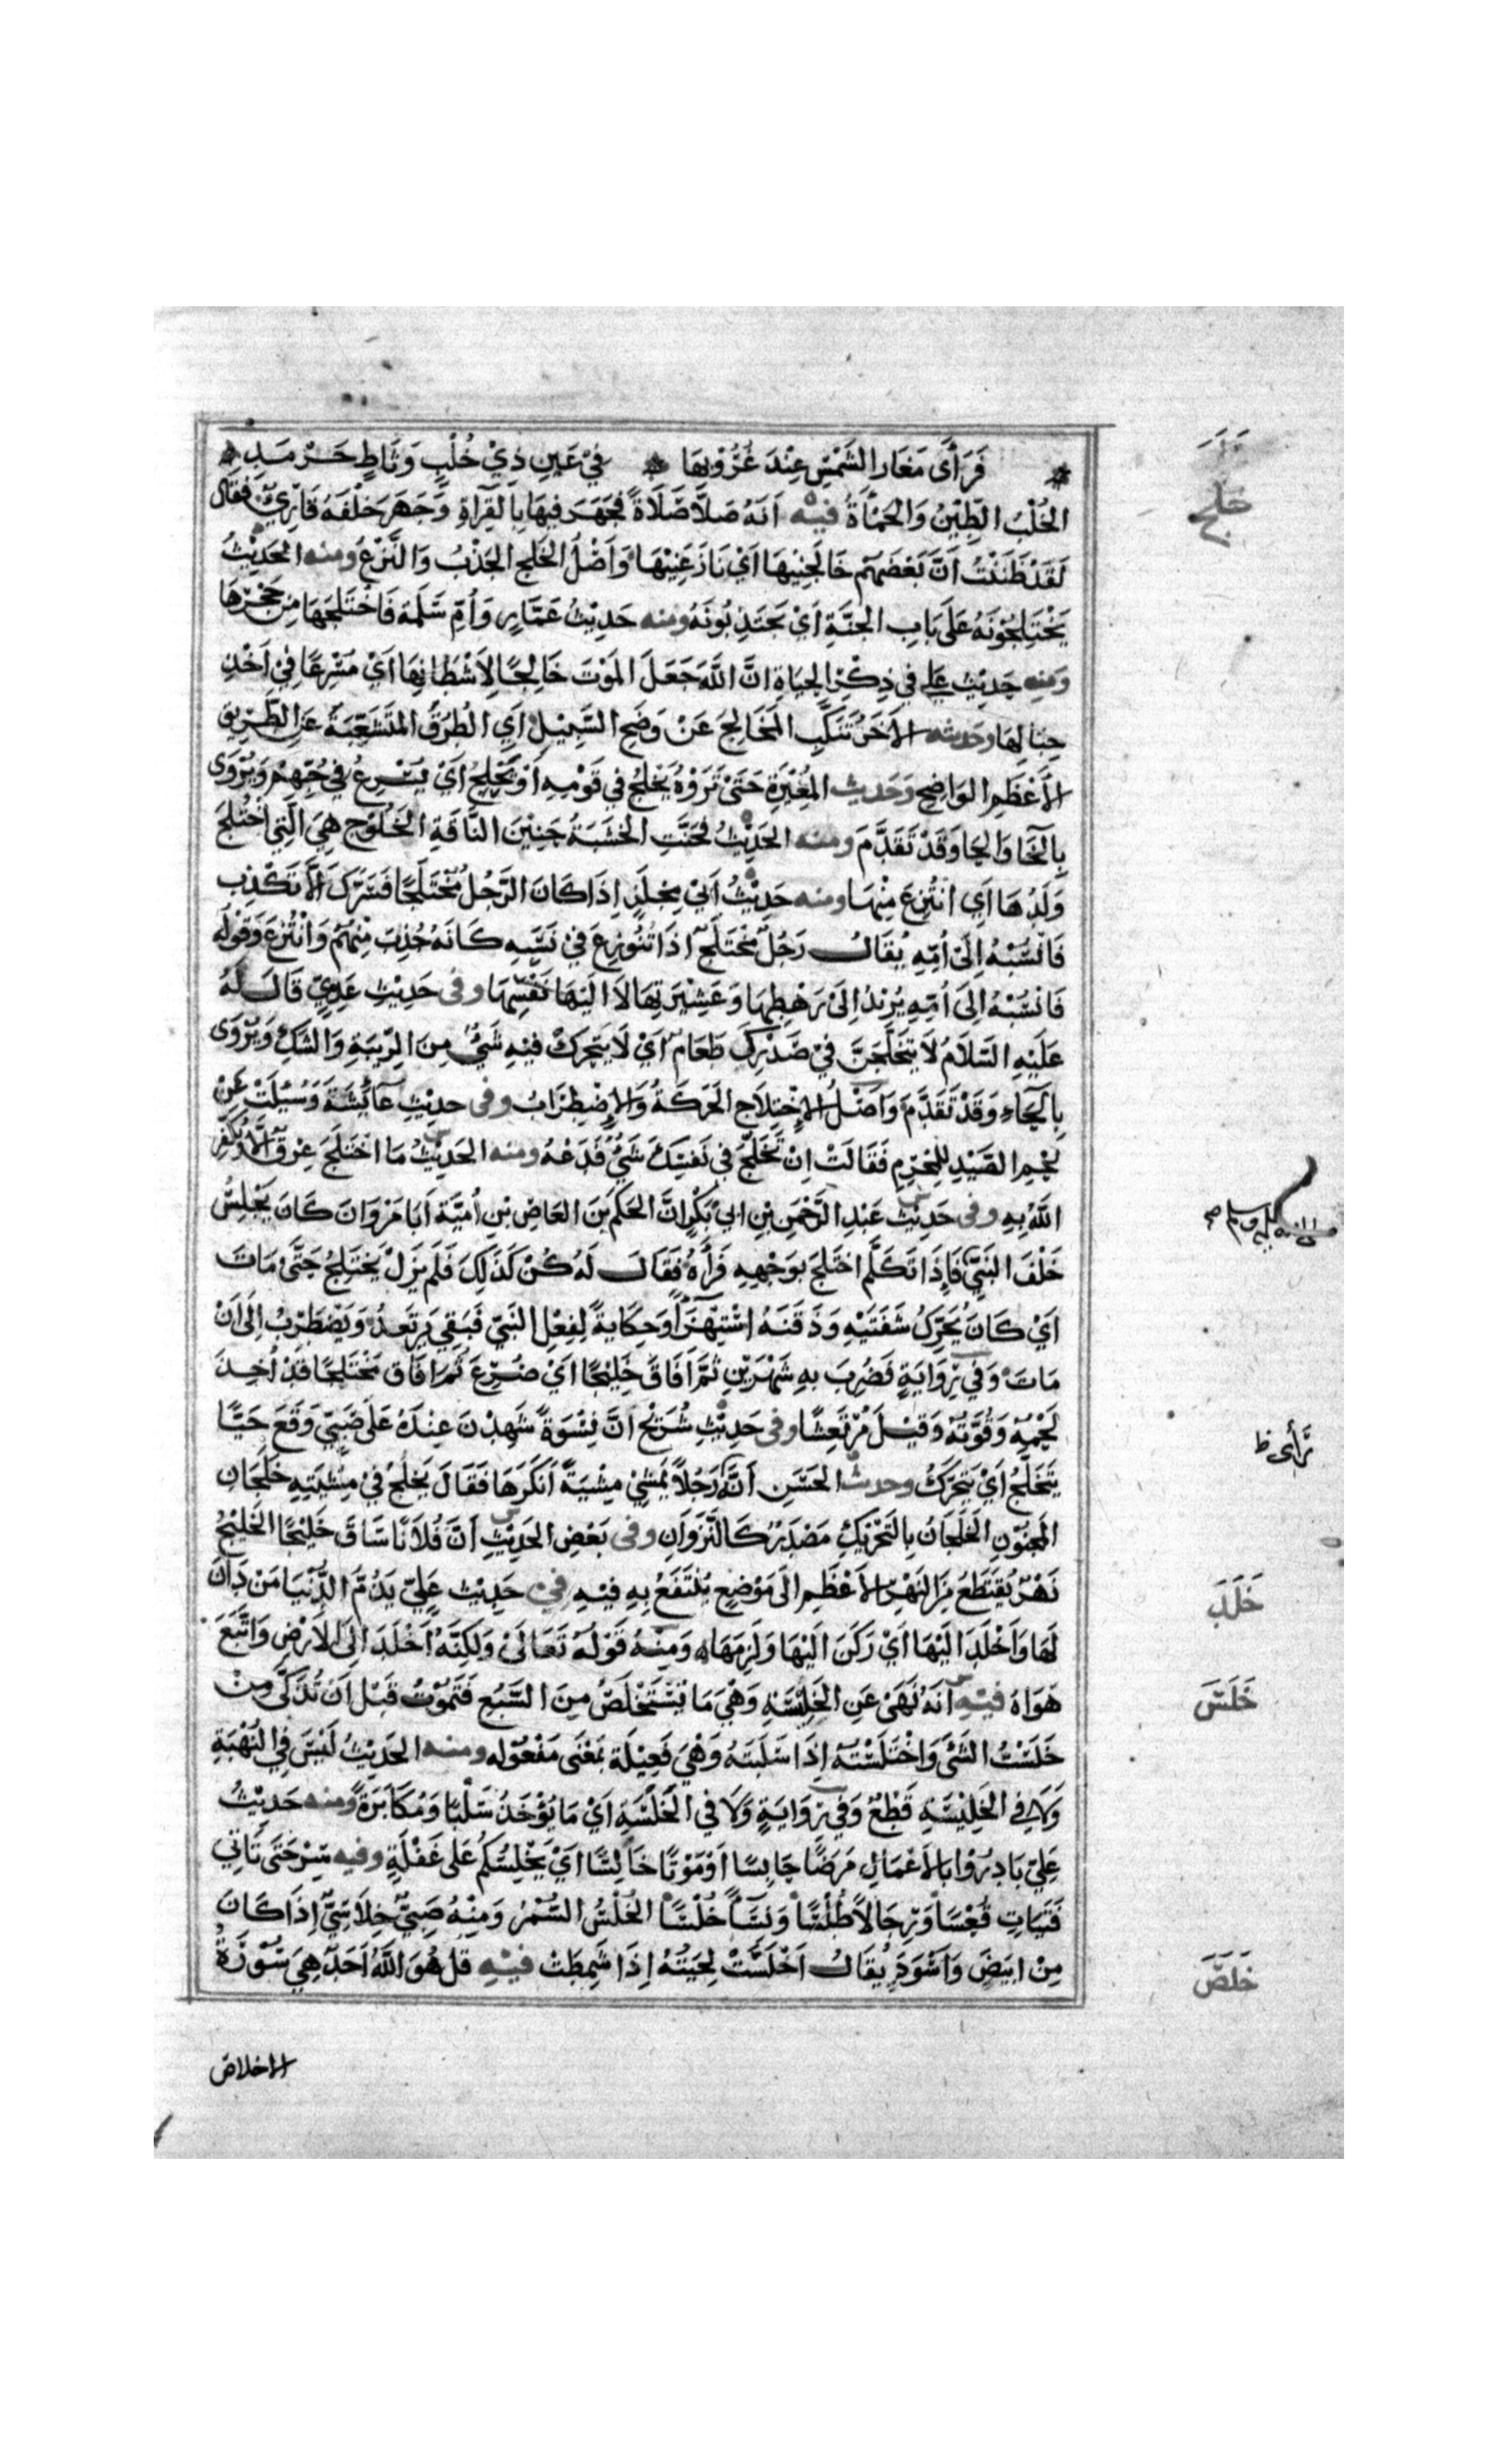 فَرَأَى مَغَارَ الشَّمْسِ عِنْدَ غُرُوْبِهَا فِيْ عَيْنِ ذِيْ خُلْبٍ وَثَاطٍ حَرْمَدِ
خلج
الخُلْبُ الطِّيْنُ وَالحَمْأَةُ فيه اَنَّهُ صَلَّا صَلَاةً فَجَهَرَ فِيهَا بِالقِرَاةِ وَجَهَرَ خَلْفَهُ قَارِئٌ فقال
لَقَدْ ظَنَنْتُ اَنَّ بَعْضَهُمْ خَالَجَنِيْهَا اَيْ نَازَعَنِيْهَا وَاَصْلُ الخَلْجِ الجَذْبُ وَالنَّزْعُ ومنه الحَدِيْثُ
يَخْتَلِجُوْنَهُ عَلَى بَابِ الجَنَّةِ اَيْ يَجْتَذِبُونَهُ ومنه حَدِيْثُ عَمَّارٍ وَاُمِّ سَلَمَة فَاخْتَلَجَهَا مِنْ جُحْرِهَا
ومنه حَدِيْث عَلِي في ذِكْرِ الحِيَاةِ اِنَّ اللَّهَ جَعَلَ المَوْتَ خَالِجًا لِاَشْطَانِهَا اَيْ مُسْرِعًا فِيْ اَخْذِ
حِبَالِهَا وحديثه الآخَرُ تَنَكَّبِ المَخَالِجَ عَنْ وَضَحِ السَّبِيْلِ اَيِ الطُّرُقُ المُتَشَعِّبَةُ عَنِ الطَّرِيقِ
الأَعْظَمِ الوَاضِحِ وَحَديث المُغِيْرَةِ حَتَّى تَرَوْهُ يَخْلِجُ فِي قَوْمِهِ اَوْ يَحْلِجُ اَيْ يُسْرِعُ فِي حُبِّهِمْ وَيُرْوَى
بِالخَا وَالحَا وَقَدْ تَقَدَّمَ ومنه الحَدِيْثُ فَحَنَّتِ الخَشَبَةُ حَنِيْنَ النَّاقَةِ الخَلُوْجِ هِيَ الَّتِي اخْتُلِجَ
وَلَدُهَا اَيِ انْتُزِعَ مِنْهَا ومنه حَدِيْثُ اَبِيْ مِجْلَزٍ اِذَا كَانَ الرَّجُلُ مُخْتَلَجًا فَسَرَّكَ اَلَّا تَكْذِبَ
فَانْسُبْهُ اِلَى اُمِّهِ يُقَالُ رَجُلٌ مُخْتَلَجٌ اذَا تُنُوزِعَ فِيْ نَسَبِهِ كَانَّهُ جُذِبَ مِنْهُمْ وَانْتُزِعَ وَقَوْلُهُ
فَانْسُبْهُ اِلَى اُمِّهِ يُرِيْدُ اِلَى رَهْطِهَا وَعَشِيْرَتِهَا لَا اِلَيْهَا نَفْسِهَا وفى حَدِيْثِ عَدِيٍّ قَالَ لَهُ
عَلَيْهِ السَّلَامُ لَا يَتَخَلَّجَنَّ فِيْ صَدْرِكَ طَعَامٌ اَيْ لَا يَتَحَرَّكْ فِيْهِ شَيْءٌ مِنَ الرِّيْبَةِ وَالشَّكِّ وَيُرْوَى
بِالحَاءِ وَقَدْ تَقَدَّمَ وَاَصْلُ الاِخْتِلَاجِ الحَرَكَةُ وَالاِضْطِرَابُ وفى حَدِيْثِ عَائِشَةَ وَسُئِلَتْ عَنْ
لَحْمِ الصَّيْدِ لِلْمُحْرِمِ فَقَالَتْ اِنْ تَخَلَّجَ فِي نَفْسِكَ شَيْءٌ فَدَعْهُ ومنه الحَدِيْثُ مَا اخْتَلَجَ عِرْقٌ اِلَّا وَيُكَفِّرُ
اللَّهُ بِهِ وفى حَدِيْثِ عَبْدِ الرَّحْمَنِ بْنِ ابِيْ بَكْرٍ اِنَّ الحَكَمَ بْنَ العَاصِ بْنِ اُمَيَّةَ اَبَا مَرْوَانَ كَانَ يَجْلِسُ
صلى الله عليه وسلم صح
خَلْفَ النَّبِيِّ فَاِذَا تَكَلَّمَ اخْتَلَجَ بِوَجْهِهِ فَرَأَهُ فَقَالَ لَهُ كُنْ كَذَلِكَ فَلَمْ يَزَلْ يَخْتَلِجُ حَتَّى مَاتَ
اَيْ كَانَ يُحَرِّكُ شَفَتَيْهِ وَذَقَنَهُ اسْتِهْزَاً وَحِكَايَةً لِفِعْلِ النَّبِيِّ فَبَقِيَ يَرْتَعِدُ وَيَضْطَرِبُ اِلَى اَنْ
مَاتَ وَفِي رِوَايَةٍ فَضُرِبَ بِهِ شَهْرَيْنِ ثُمَّ اَفَاقَ خَلِيْجًا اَيْ صُرِعَ ثُمَّ افَاقَ مُخْتَلَجًا قَدْ اُخِذَ
لَحْمُهُ وَقُوَّتُهُ وَقِيْلَ مُرْتَعِشًا وفى حَدِيْثِ شُرَيْحٍ اَنَّ نِسْوَةً شَهِدْنَ عِنْدَهُ عَلَى صَبِيٍّ وَقَعَ حَيًّا
رَأَى ظ
يَتَخَلَّجُ اَيْ يَتَحَرَّكُ وحديث الحَسَنِ اَنَّهُ رَجُلًا يَمْشِيْ مِشْيَةً اَنْكَرَهَا فَقَالَ يَخْلِجُ فِيْ مِشْيَتِهِ خَلَجَانَ
المَجْنُوْنِ الخَلَجَانُ بِالتَّحْرِيْكِ مَصْدَرٌ كَالنَّزَوَانِ وفى بَعْضِ الحَدِيْثِ اَنَّ فُلَانًا سَاقَ خَلِيْجًا الخَلِيْجُ
نَهْرٌ يُقْتَطَعُ مِنَ النَّهْرِ الاَعْظَمِ الَى مَوْضِعٍ يُنْتَفَعُ بِهِ فِيْهِ في حَدِيْث عَلِيٍّ يَذُمُّ الدُّنْيَا مَنْ دَانَ
خَلَدَ
لَهَا وَاَخْلَدَ اِلَيْهَا اَيْ رَكَنَ اِلَيْهَا وَلَزِمَهَا وَمِنْهُ قَوْلُهُ تَعَالَى وَلَكِنَّهُ اَخْلَدَ اِلَى الاَرْضِ وَاتَّبَعَ
خَلَسَ
هَوَاهُ فيه اَنَّهُ نَهَى عَنِ الخَلِيْسَةِ وَهْيَ مَا تُسْتَخْلَصُ مِنَ السَّبُعِ فَتَمُوْتُ قَبْلَ اَنْ تُذَكَّى مِنْ
خَلَسْتُ الشَّئَ وَاخْتَلَسْتُهُ اِذَا سَلَبْتَهُ وَهْيَ فَعِيْلَة بِمَعْنَى مَفْعُوْلَه ومنه الحَدِيْثُ لَيْسَ فِي النُّهْبَةِ
وَلَا فِي الخَلِيْسَةِ قَطْعٌ وَفِي رِوَايَةٍ وَلَا فِي الخُلْسَةِ اَيْ مَا يُؤْخَذُ سَلْبًا وَمُكَابَرَةً ومنه حَدِيْثُ
عَلِيٍّ بَادِرُوْا بِالاَعْمَالِ مَرَضًا حَابِسًا اَوْ مَوْتًا خَالِسًا اَيْ يَخْتَلِسُكُمْ عَلَى غَفْلَةٍ وفيه سِرْ حَتَّى تَاتِي
فَتَيَاتٍ قُعْسًا وَرِجَالًا طُلْسًا وَنِسَاً خُلْسًا الخُلْسُ السُّمْرُ وَمِنْهُ صَبِيٌّ خِلَاسِيٌّ اِذَا كَانَ
خَلَصَ
مِنْ ابْيَضَ وَاَسْوَدَ يُقَالُ اَخْلَسَتْ لِحْيَتُهُ اِذَا شَمِطَتْ فيه قُلْ هُوَ اللَّهُ اَحَدٌ هِيَ سُوْرَةُ
الاخلاص